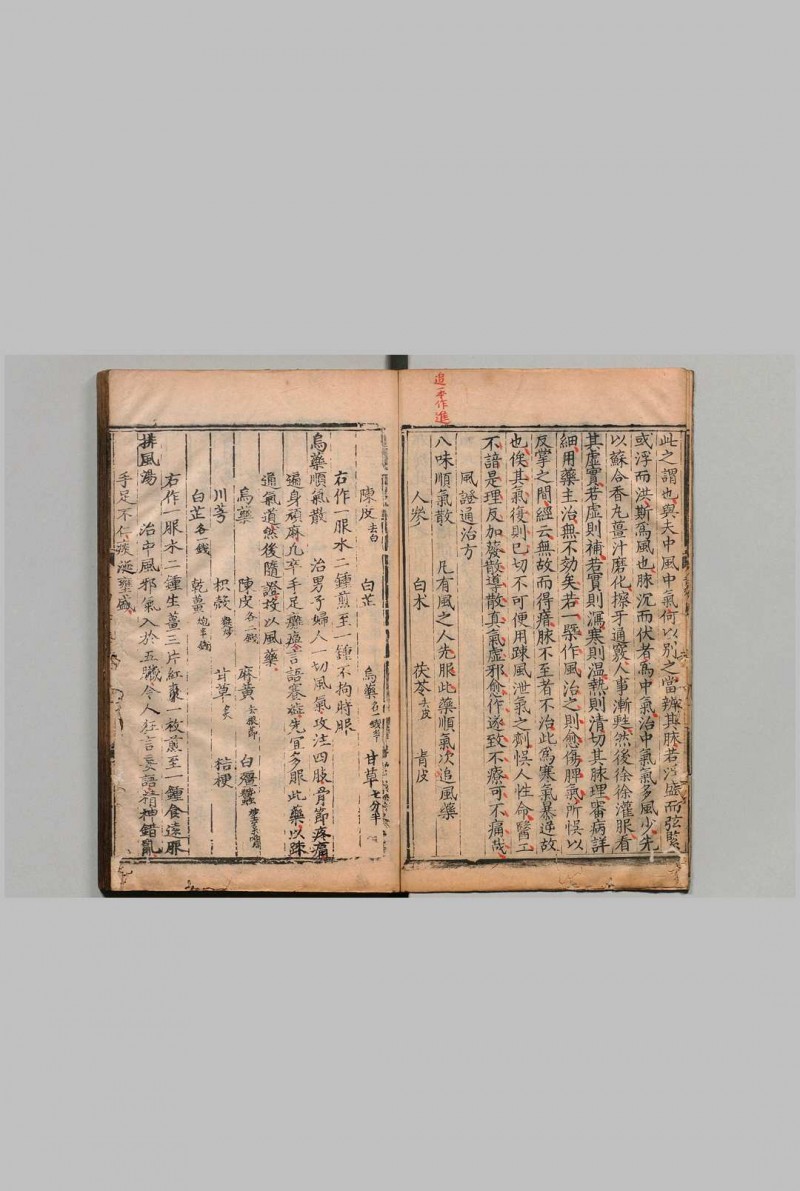 追一本作進
此之謂也與夫中風中氣何以別之當辨其脉若浮盛而弦緊
或浮而洪斯爲風也脉沉而伏者爲中氣治中氣氣多風少先
以蘇合香丸薑汁磨化擦牙通竅人事漸甦然後徐徐灌服看
其虛實若虛則補若實則瀉寒則温熱則清切其脉理審病詳
細用藥主治無不効矣若一槩作風治之則愈傷脾氣所悞以
反掌之間經云無故而得瘖脉不至者不治此爲寒氣暴逆故
也俟其氣復則已切不可便用踈風泄氣之劑悞人性命醫工
不諳是理反加發散導散真氣虛邪愈作遂致不療可不痛哉
風證通治方
八味順氣散 凡有風之人先服此藥順氣次追風藥
人參 白术 茯苓去皮 青皮
陳皮去白 白芷 烏藥各一錢半 甘草七分半
右作一服水二鍾煎至一鍾不拘時服
烏藥順氣散 治男子婦人一切風氣攻注四肢骨節疼痛
遍身頑麻凡卒手足癱瘓言語蹇澁先宜多服此藥以踈
通氣道然後隨證投以風藥
烏藥 陳皮各二錢 麻黄去根節 白殭蠶
川芎 枳殼麩炒 甘草炙 桔梗
白芷各一錢 乾薑炮半錢
右作一服水二鍾生薑三片紅棗一枚煎至一鍾食遠服
排風湯 治中風邪氣入於五臟令人狂言妄語精神錯亂
手足不仁痰涎壅盛